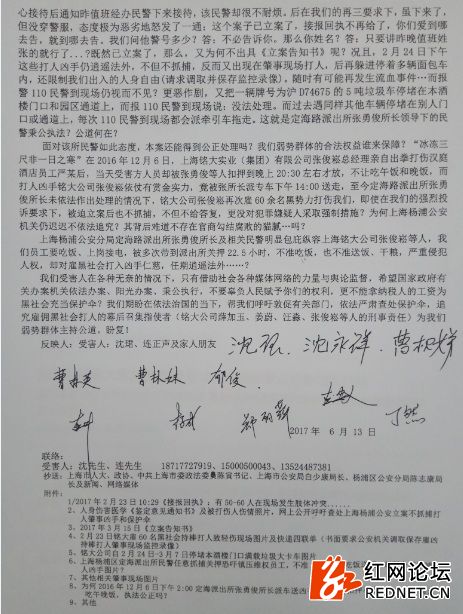 心接待后通知昨值班经办民警下来接待，该民警却很不耐烦。后在我们的再三要求下，虽下来了，
但没穿警服，态度极为恶劣地怒发了一通：这个案子已立案了，接报回执不再给了，你们爱到哪
去告，就到哪去告。我们问他警号多少？答：不必告诉你，那么你姓名？答：只要讲昨晚值班姓
张的就行了...？既然已立案了，那么，又为何不出具《立案告知书》呢？况且，2月24日下午
这些打人凶手仍逍遥法外，不但不抓捕，反而又出现在肇事现场打人，后再躲进停着多辆面包车
内，还限制我们出入的人身自由(请求调取并保存监控录像)，随时有可能再发生流血事件…而报
警110民警到现场仍视而不见？更恶作剧，又把一辆牌号为沪D74675的5吨垃圾车停堵在本酒
楼门口和园区通道上，而报110民警到现场说：没法处理。而过去遇同样其他车辆停堵在别人门
口或通道上，每次110民警到现场都会派牵引车拖走。这就是定海路派出所张勇俊所长领导下的民
警秉公执法？公道何在？
面对该所民警如此态度，本案还能得到公正处理吗？我们弱势群体的合法权益谁来保障？“冰冻三
尺非一日之寒”在2016年12月6日，上海铭大实业（集团）有限公司张俊崧总经理亲自出拳打伤汉庭
酒店员工严某后，当天受害方人员却被张勇俊等人扣押到晚上20:30左右才放，不让吃午饭和晚饭，而
打人凶手铭大公司张俊崧依仗有赏金实力，竟被张所长派专车下午14:00送走，至今定海路派出所张勇
俊所长未依法作出处理的情况下，铭大公司张俊崧再次雇60余名黑势力打伤我们，即使在我们的强烈投
诉要求下，被迫立案后也不抓捕，不但不给答复，更没对犯罪嫌疑人采取强制措施？为何上海杨浦公安
机关仍迟迟不依法追究？其背后难道不存在官商勾结腐败的猫腻…吗？
上海杨浦公安分局定海路派出所张勇俊所长及相关民警明显包庇纵容上海铭大公司张俊崧等人，我
们员工要吃饭、上岗接电，被多次带到派出所关押22.5小时，不准吃饭，也不准送饭、干粮，严重侵犯
人权，却对雇黑社会打人凶手仁慈，任期逍遥法外……？
我们受害人在各种无奈的情况下，只有借助社会各种媒体网络的力量与舆论监督，希望国家政府有
关办案机关依法办案、阳光办案，秉公执行，不要辜负人民赋予你们的权利，更不能拿纳税人的工资为
黑社会充当保护伞？我们期盼在依法治国的当下，帮我们呼吁敦促有关部门，依法严肃查处保护伞，追
究雇佣黑社会打人的幕后召集指使者（铭大公司薛加玉、姜蔚、江淼、张俊崧等人的刑事责任）为我们
弱势群体主持公道，盼复！
反映人：受害人：沈珺、连正声及家人朋友
沈珺、沈永祥、曹根娣
曹林英 曹林妹 郁俊
丁然
2017 年 6 月 13 日
联络：
受害人：沈先生、连先生 18717727919、15000500043、13524487381
抄送：上海市人大、政协、中共上海市委政法委员陈寅书记、上海市公安局白少康局长、杨浦区公安分局陈志康局
长及新闻、网络媒体
附件：
1/2017年2月23日10:29《接报回执》：有50-60人在现场发生肢体冲突……
2、人身伤害医学《鉴定意见通知书》及被打伤人伤情照片，网上公开呼吁查处上海杨浦公安立案不抓捕打
人肇事凶手和保护伞
3、2017年3月15日《立案告知书》
4、2月23日铭大雇60名黑社会持棒打人致轻伤现场图片及快递四联单（书面要求公安机关调取保存雇凶
持棒打人肇事现场监控录像）
5、铭大公司自2月24日-3月7日停堵本酒楼门口满载垃圾大卡车图片
6、上海杨浦区定海路派出所民警任意抓捕关押恐吓镇压维权员工，不准
人凶手图片？
7、其他相关肇事现场图片
8、为何2016年12月6日下午2:00定海派出所张勇俊所长派专车送凶
吃午晚饭，执法公正吗？
9、其他
红网论坛
REDNET.CN